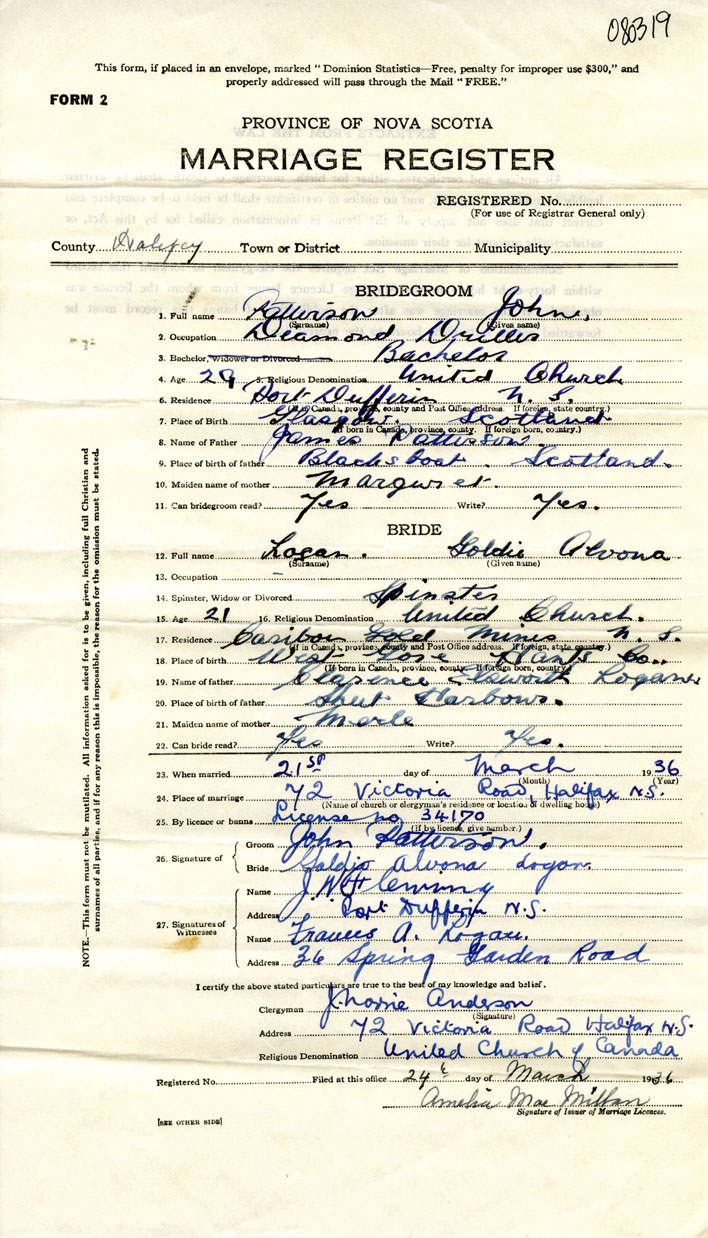 080319
This form, if placed in an envelope, marked "Dominion Statistics—Free, penalty for improper use $300," and
properly addressed will pass through the Mail "FREE."
FORM 2
PROVINCE OF NOVA SCOTIA
MARRIAGE REGISTER
REGISTERED No.
(For use of Registrar General only)
County Halifax Town or District Municipality
BRIDEGROOM
1. Full name Patterson John,
(Surname) (Given name)
2. Occupation Diamond Driller
3. Bachelor, Widower or Divorced Bachelor
4. Age 29 5. Religious Denomination United Church
6. Residence Port Dufferin N.S.
(If in Canada, province, county and Post Office address. If foreign, state country.)
7. Place of Birth Glasgow Scotland
(If born in Canada, province, county. If foreign born, country.)
8. Name of Father James Patterson
9. Place of birth of father Blacksboat. Scotland.
10. Maiden name of mother Marguret.
11. Can bridegroom read? Yes Write? Yes.
BRIDE
12. Full name Logan. Goldie Alvona
(Surname) (Given name)
13. Occupation –
14. Spinster, Widow or Divorced Spinster
15. Age 21 16. Religious Denomination United Church.
17. Residence Caribou Gold Mines N.S.
(If in Canada, province, county and Post Office address. If foreign, state country.)
18. Place of birth West Gore Hants Co..
(If born in Canada, province, county. If foreign born, country)
19. Name of father Clarence Elsworth Logan
20. Place of birth of father Sheet Harbour.
21. Maiden name of mother Merle
22. Can bride read? Yes Write? Yes.
23. When married 21st day of March 1936
(Month) (Year)
24. Place of marriage 72 Victoria Road, Halifax N.S.
(Name of church or clergyman's residence or location of dwelling house)
25. By licence or banns License no 34170
(If by licence, give number.)
26. Signature of Groom John Patterson.
Bride Goldie Alvona Logan.
27. Signatures of Witnesses
Name J.W. Flemming
Address Port Dufferin N.S.
Name Frances A. Logan.
Address 36 Spring Garden Road
I certify the above stated particulars are true to the best of my knowledge and belief.
Clergyman Anderson
(Signature)
Address 72 Victoria Road Halifax N.S.
Religious Denomination United Church of Canada
Registered No. Filed at this office 24th day of March 1936
Amelia Mac Millan
Signature of Issuer of Marriage Licences.
[SEE OTHER SIDE]
NOTE.—This form must not be mutilated. All information asked for is to be given, including full Christian and
surnames of all parties, and if for any reason this is impossible, the reason for the omission must be stated.